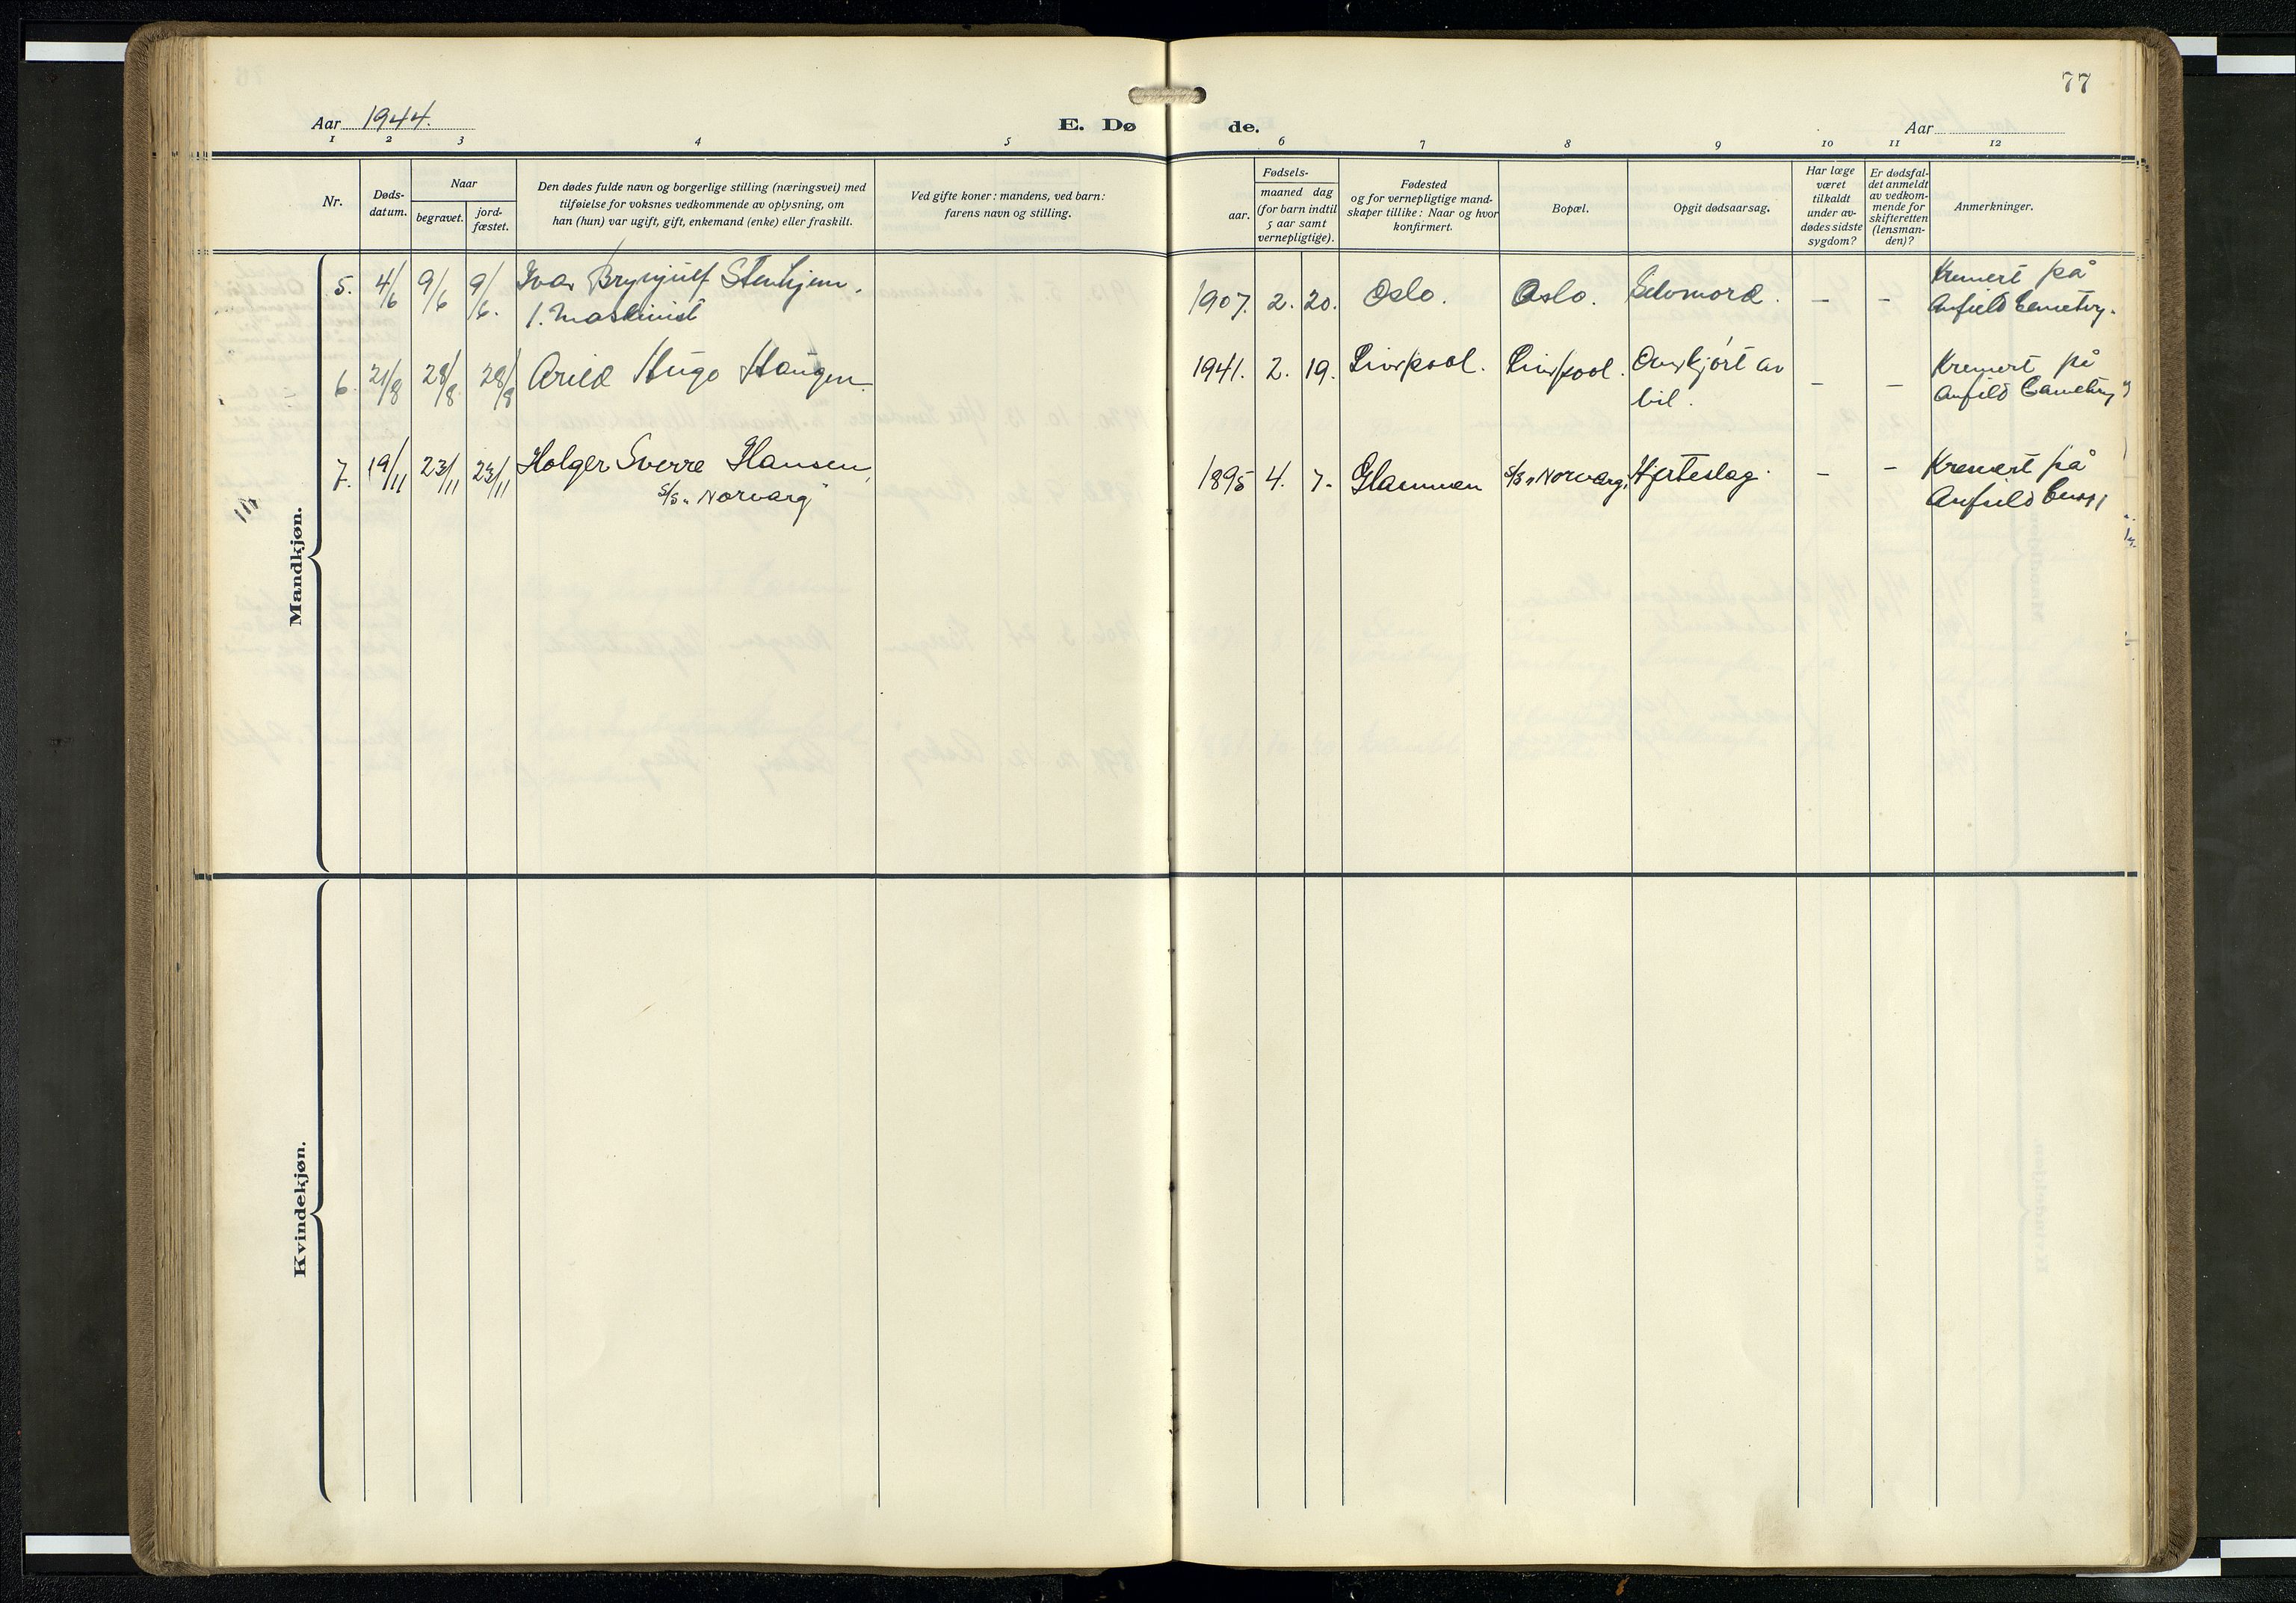 77
Aar 1944.
E. Dø de.
Aar
1 2 3 4 5 6 7 8 9 10 11 12
Nr.
Døds-
datum.
Naar
begravet.
jord-
fæstet.
Den dødes fulde navn og borgerlige stilling (næringsvei) med
tilføielse for voksnes vedkommende av oplysning, om
han (hun) var ugift, gift, enkemand (enke) eller fraskilt.
Ved gifte koner: mandens, ved barn:
farens navn og stilling.
Fødsels-
aar.
maaned dag
(for barn indtil
5 aar samt
vernepligtige).
Fødested
og for vernepligtige mand-
skaper tillike: Naar og hvor
konfirmert.
Bopæl.
Opgit dødsaarsag.
Har læge
været
tilkaldt
under av-
dødes sidste
sygdom?
Er dødsfal-
det anmeldt
av vedkom-
mende for
skifteretten
(lensman-
den)?
Anmerkninger.
Mandkjøn.
5. 4/6 9/6 9/6. Ivar Brynjulf Stenhjem. 1907. 2. 20. Oslo. Oslo. Selvmord. - - Kremert på
1. Maskinist Anfield Cemetry.
6. 21/8 28/8 28/8 Arild Hugo Haugen. 1941. 2. 19. Liverpool. Liverpool. Overkjørt av - - Kremert på
bil. Anfield Cemetry
7. 19/11 23/11 23/11 Holger Sverre Hansen, 1895 4. 7. Glemmen S/S „Norvarg" Hjerteslag. - - Kremert på
S/S „Norvarg" Anfield
Kvindekjøn.